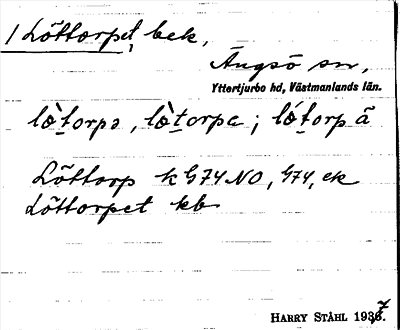 1 Löttorpet, bek,
Ängsö sn,
Yttertjurbo hd, Västmanlands län.
lò̀t̲orpə, lò̀t̲orpa; lót̲orp ä
Löttorp k G74 NO, G74, ek
Löttorpet kb
HARRY STÅHL 1937